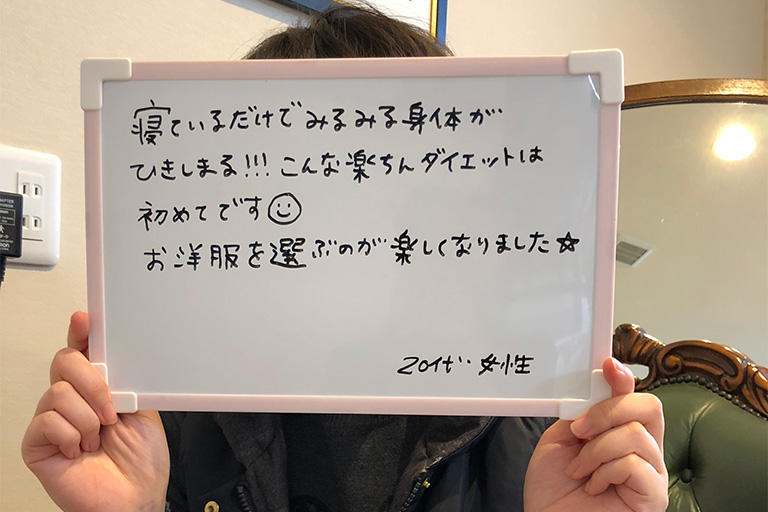 寝ているだけでみるみる身体が
ひきしまる!!! こんな楽ちんダイエットは
初めてです☺
お洋服を選ぶのが楽しくなりました☆
20代・女性